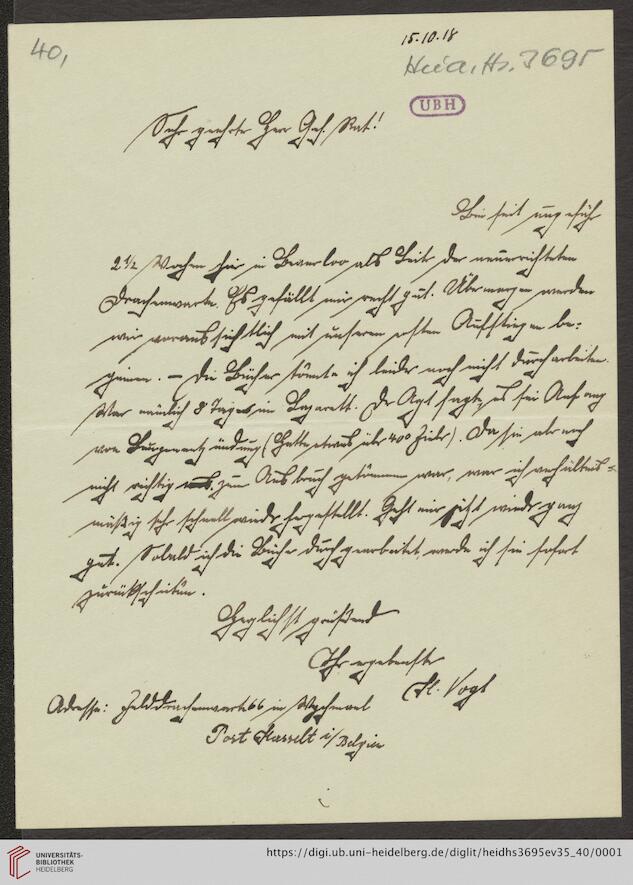 40,
15.10.18
Heid. Hs. 3695
UBH
Sehr geehrter Herr Geh. Rat!
Bin seit ungefähr
2 1/2 Wochen hier in Beverloo als Leiter der neuerrichteten
Drachenwarte. Es gefällt mir recht gut. Übermorgen werden
wir voraussichtlich mit unseren ersten Aufstiegen be-
ginnen. – Die Bücher konnte ich leider noch nicht durcharbeiten.
War nämlich 8 Tage im Lazarett. Der Arzt sagte, es sei Anfang
von Lungenentzündung (hatte etwas über 40° Fieber). Da sie aber noch
nicht richtig zum Ausbruch gekommen war, war ich verhältnis-
mäßig sehr schnell wieder hergestellt. Geht mir jetzt wieder ganz
gut. Sobald ich die Bücher durchgearbeitet, werde ich sie sofort
zurückschicken.
Herzlichst grüßend
Ihr ergebenster
H. Vogt
Adresse: Felddrachenwarte 66 in Wychmael
Post Hasselt i/Belgien
UNIVERSITÄTS-
BIBLIOTHEK
HEIDELBERG
https://digi.ub.uni-heidelberg.de/diglit/heidhs3695ev35_40/0001